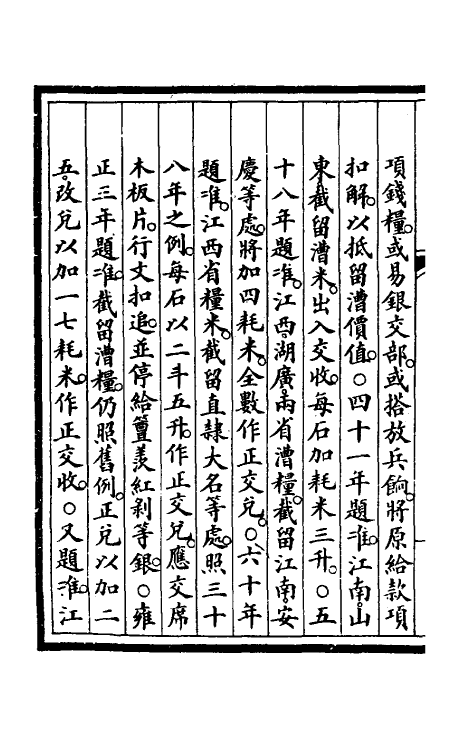 項錢糧。或易銀交部。或搭放兵餉。將原給款項
扣解。以抵留漕價值。○四十一年題准。江南。山
東截留漕米。出入交收。每石加耗米三升。○五
十八年題准。江西湖廣兩省漕糧。截留江南。安
慶等處。將加四耗米。全數作正交兌。○六十年
題准。江西省糧米。截留直隸大名等處。照三十
八年之例。每石以二斗五升。作正交兌。應交席
木板片。行文扣追。並停給簠羡紅剥等銀。○雍
正三年題准。截留漕糧。仍照舊例。正兌以加二
五。改兌以加一七耗米。作正交收。○又題准。江